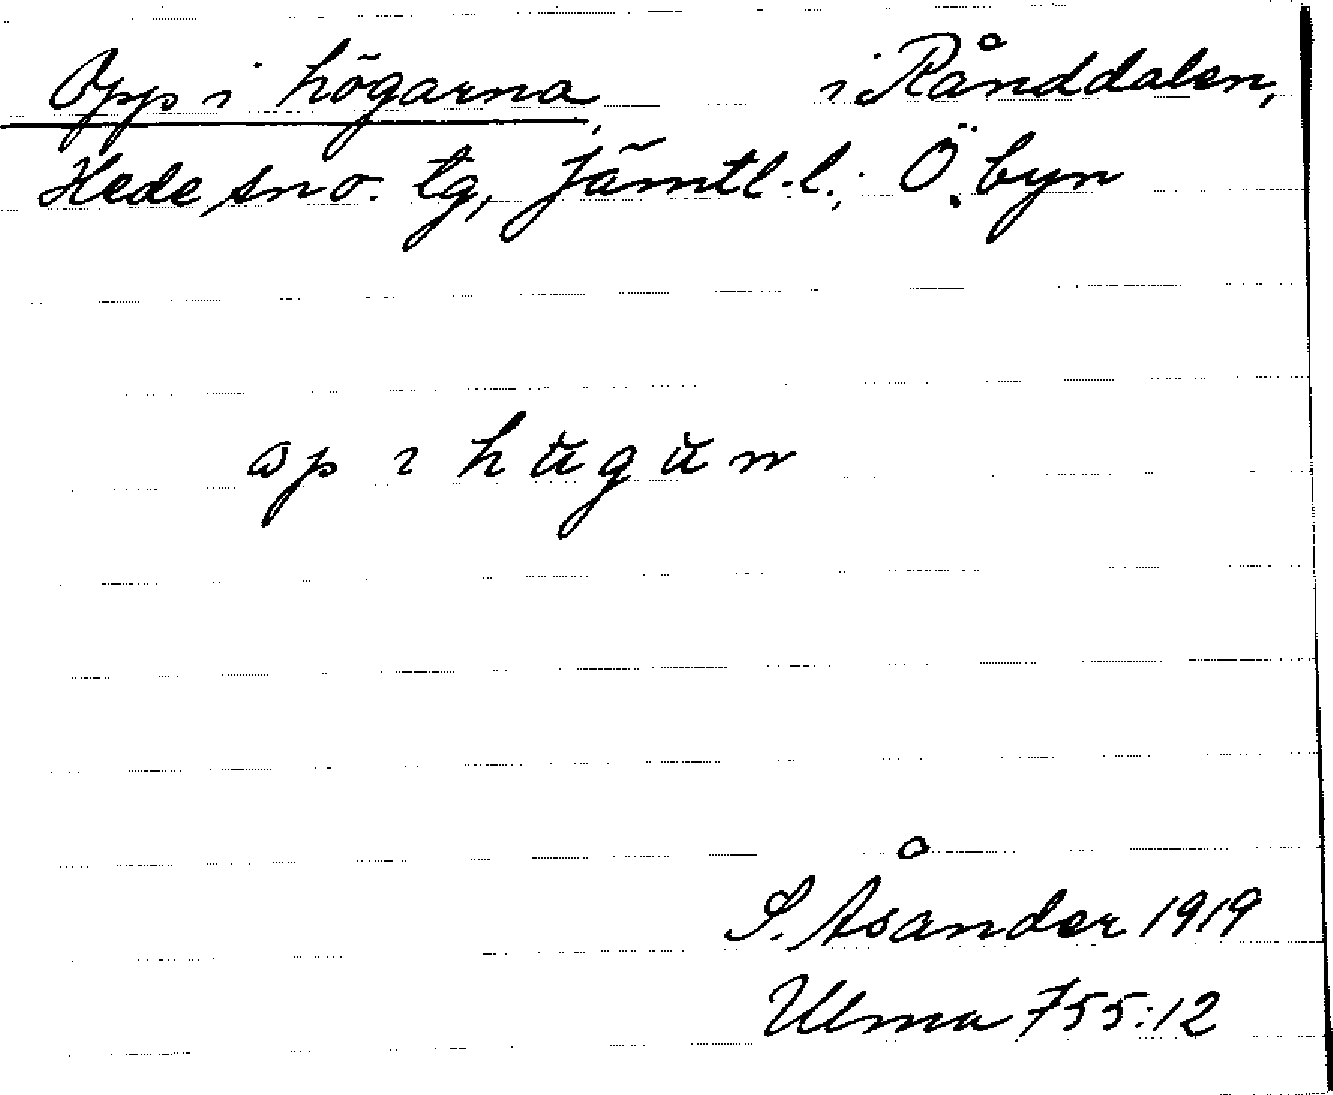 Opp i högarna i Rånddalen,
Hede sn o. tg, Jämtl. l.; Ö. byn
op i hŭgŭn
S. Åsander 1919
Ulma 755:12